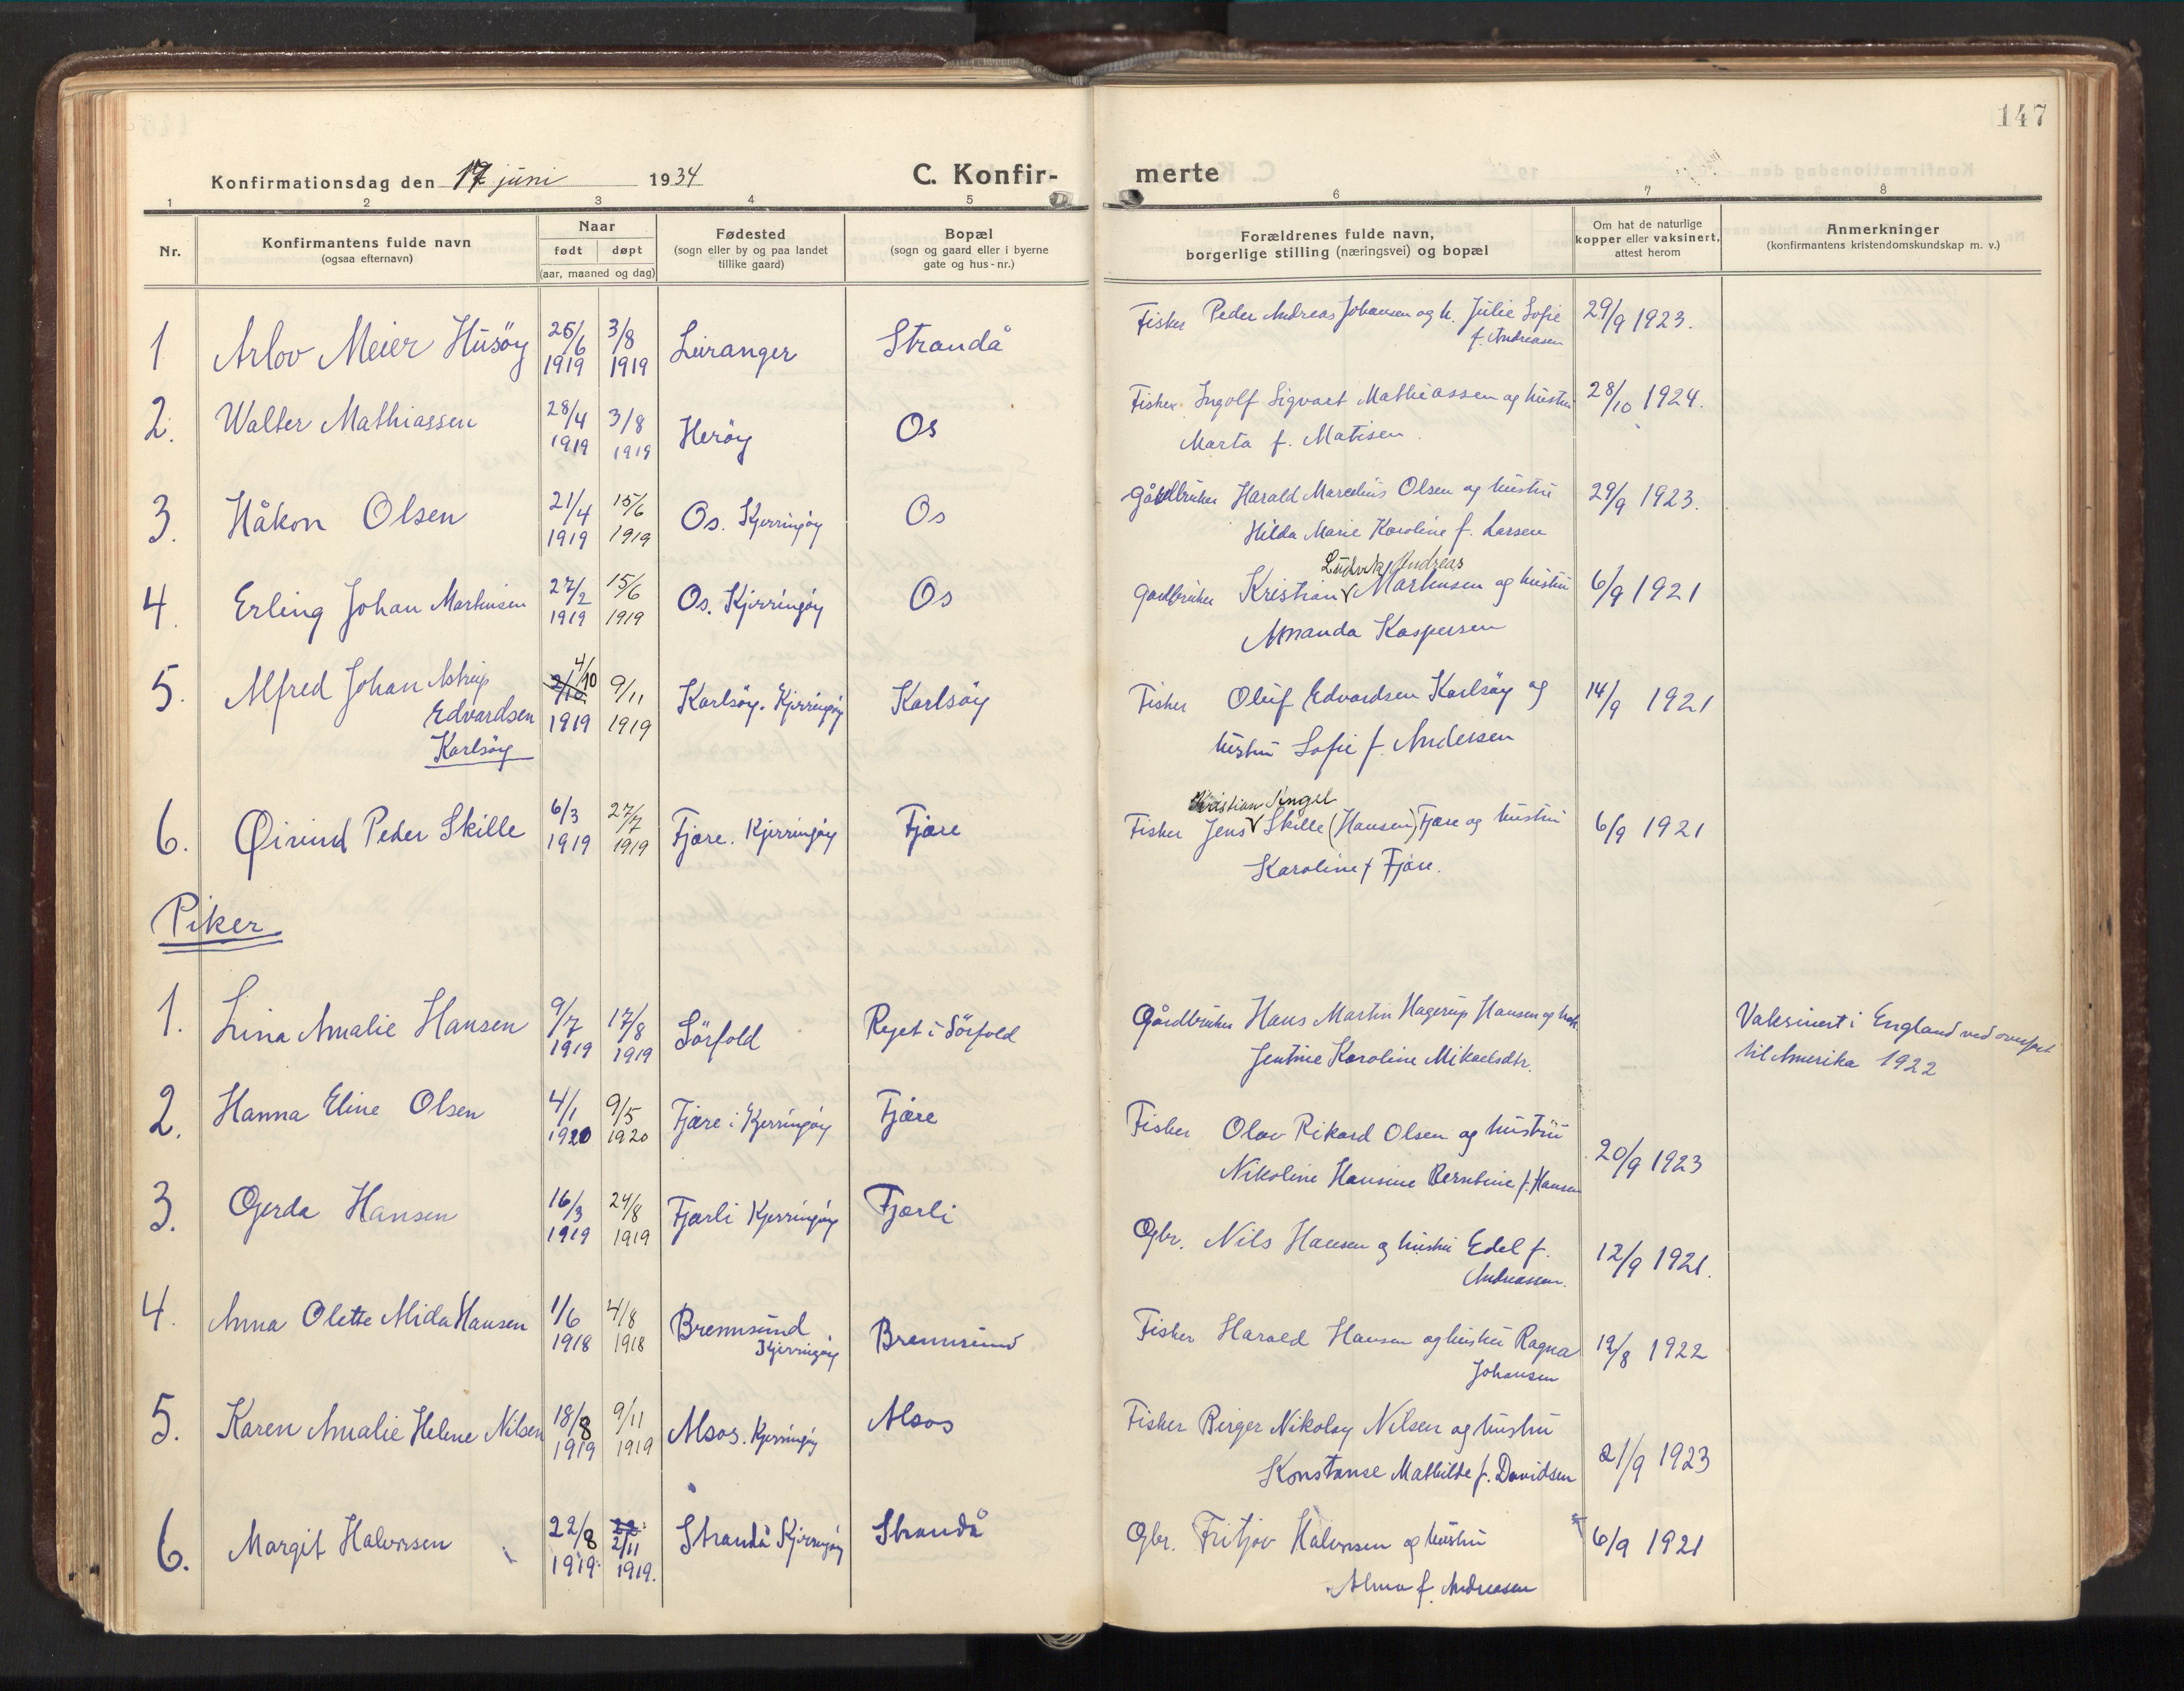 147
Konfirmationsdag den 17 juni 1934 C. Konfir- merte
1 2 3 4 5 6 7 8
Nr.
Konfirmantens fulde navn
(ogsaa efternavn)
Naar
født døpt
(aar, maaned og dag)
Fødested
(sogn eller by og paa landet
tillike gaard)
Bopæl
(sogn og gaard eller i byerne
gate og hus-nr.)
Forældrenes fulde navn,
borgerlige stilling (næringsvei) og bopæl
Om hat de naturlige
kopper eller vaksinert,
attest herom
Anmerkninger
(konfirmantens kristendomskundskap m. v.)
1 Arlov Meier Husöy 26/6 1919 3/8 1919 Leiranger Strandå Fisker Peder Andreas Johansen og h. Julie Sofie
f. Andreasen 29/9 1923.
2. Walter Mathiassen 28/4 1919 3/8 1919 Heröy Os Fisker Ingolf Sigvart Mathiassen og hustru
Marta f. Matisen. 28/10 1924.
3. Håkon Olsen 21/4 1919 15/6 1919 Os. Kjerringöy Os Gårdbruker Harald Marcelius Olsen og hustru
Hilda Marie Karoline f. Larsen 29/9 1923.
4. Erling Johan Martinsen 27/2 1919 15/6 1919 Os. Kjerringöy Os Gardbruker Kristian Ludvik Andreas Martinsen og hustru
Amanda Kaspersen 6/9 1921
5. Alfred Johan Astrup
Edvardsen
Karlsöy 2/10 4/10 1919 9/11 1919 Karlsöy. Kjerringöy Karlsöy Fisker Oluf Edvardsen Karlsöy og
hustru Sofie f. Andersen 14/9 1921
6. Øivind Peder Skille 6/3 1919 27/7 1919 Fjære. Kjerringöy Fjære Fisker Jens Kristian Angel Skille (Hansen) Fjære og hustru
Karoline f Fjære. 6/9 1921
Piker
1. Lina Amalie Hansen 9/7 1919 17/8 1919 Sörfold Röset i Sörfold Gårdbruker Hans Martin Hagerup Hansen og hstr.
Jentine Karoline Mikaelsdtr. Vaksinert i England ved overfart
til Amerika 1922
2. Hanna Eline Olsen 4/1 1920 9/5 1920 Fjære i Kjerringöy Fjære Fisker Olav Rikard Olsen og hustru
Nikoline Hansine Berntine f. Hansen 20/9 1923
3. Gjerda Hansen 16/3 1919 24/8 1919 Fjærli Kjerringöy Fjærli Gbr. Nils Hansen og hustru Edel f.
Andreassen. 12/9 1921.
4. Anna Olette Alida Hansen 1/6 1918 4/8 1918 Brennsund
Kjerringöy Brennsund Fisker Harald Hansen og hustru Ragna
Johansen 19/8 1922
5. Karen Amalie Helene Nilsen 18/8 1919 9/11 1919 Alsos. Kjerringöy Alsos Fisker Birger Nikolay Nilsen og hustru
Konstanse Mathilde f. Davidsen 21/9 1923
6. Margit Halvorsen 22/8 1919. 2/11 1919. Strandå Kjerringöy Strandå Gbr. Fritjov Halvorsen og hustru
Alma f. Andreasen 6/9 1921